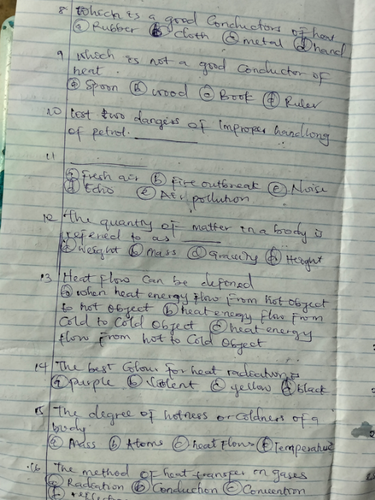 8 Which is a good Conductors of hea
ⓐ Rubber ⓑ Cloth ⓒ metal ⓓ hand
9 Which is not a good Conductor of
heat
ⓐ Spoon ⓑ wood ⓒ Book ⓓ Ruler
10 List two dangers of Improper handling
of petrol. ________
11 ________
ⓐ Fresh air ⓑ Fire outbreak ⓒ Noise
ⓓ Echo ⓔ Air pollution
12 The quantity of matter in a body is
refered to as ____
ⓐ weight ⓑ mass ⓒ gravity ⓓ Height
13 Heat flow can be defened
ⓐ when heat energy flow from hot object
to hot object ⓑ heat energy flow from
Cold to Cold object ⓒ heat energy
flow from hot to Cold Object
14 The best Colour for heat radiation is
ⓐ purple ⓑ Violent ⓒ yellow ⓓ black
15 The degree of hotness or coldness of a
body
ⓐ Mass ⓑ Atoms ⓒ heat flows ⓓ Temperature
16 The method of heat transfer on gases
ⓐ Radiation ⓑ Conduction ⓒ Convention